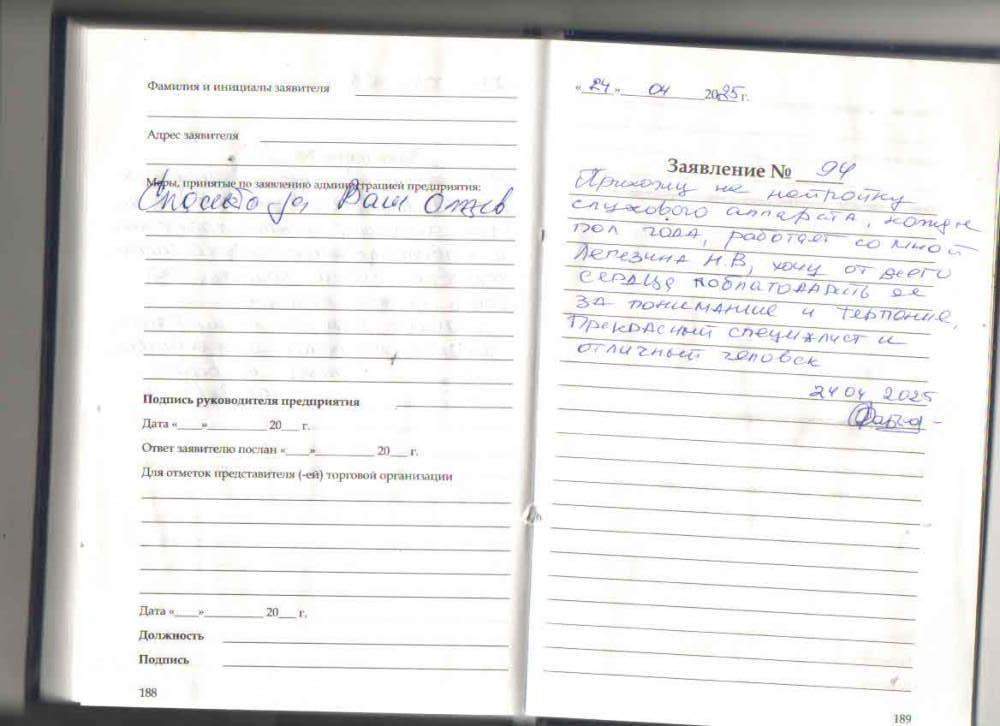 Фамилия и инициалы заявителя
Адрес заявителя
Меры, принятые по заявлению администрацией предприятия:
Спасибо за Ваш Отзыв
Подпись руководителя предприятия
Дата «____»__________ 20___ г.
Ответ заявителю послан «____»__________ 20___ г.
Для отметок представителя (-ей) торговой организации
Дата «____»__________ 20___ г.
Должность
Подпись
188
«24» 04 2025 г.
Заявление № 94
Прихожу на нстройку
слухового аппарата, кажде
пол года, работает со мной
Лепезина Н.В, хочу от всего
сердца поблагодарить ее
за понимание и терпение,
Прекрасный специалист и
отличный человек
24 04 2025
189